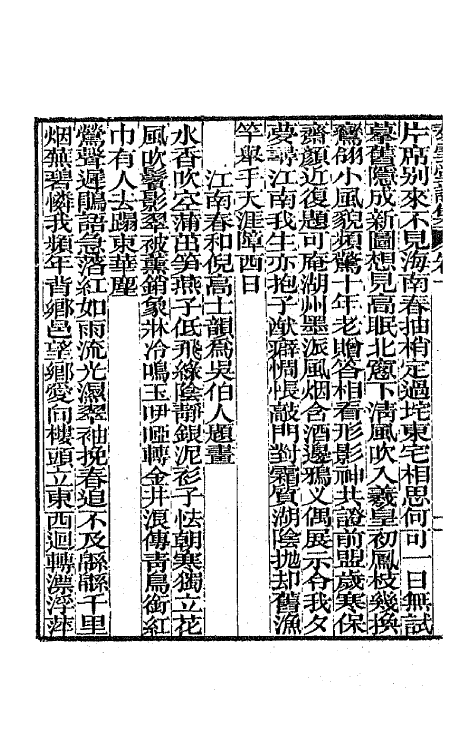 片席别來不見海南春抽梢定過垞東宅相思何可一日無試
摹舊隱成新圖想見高眠北窻下清風吹入羲皇初鳳枝幾換
鸞翎小風貌頻驚十年老贈答相看形影神共證前盟歲寒保
齋顔近復題可庵湖州墨派風烟含酒邊鴉叉偶展示令我夕
夢尋江南我生亦抱子猷癖惆悵敲門對霜質湖陰抛却舊漁
竿舉手天涯障西日
江南春和倪高士韻爲吳伯人題畫
水香吹空蒲茁笋燕子低飛綠陰靜銀泥衫子怯朝寒獨立花
風吹鬢影翠被薰銷象牀冷鳴玉咿啞轉金井浪傳青鳥銜紅
巾有人去蹋東華塵
鶯聲遲鵑語急落紅如雨流光濕翠袖挽春追不及緜緜千里
烟蕪碧憐我頻年背鄉邑望鄉愛向樓頭立東西迴轉漂浮萍